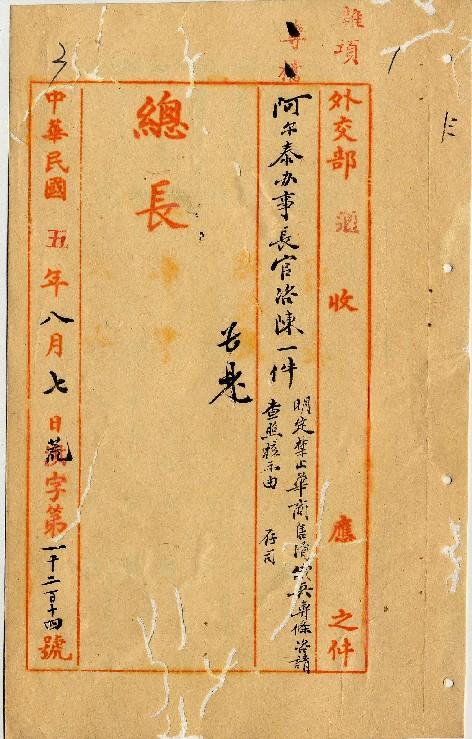 雜項
專檔
外交部 收 應 之件
阿尔泰办事長官咨陳一件
明定禁止華商售債 專條咨請
查照核示由 存司
總長
中華民國五年八月七日荒字第一千二百十四號